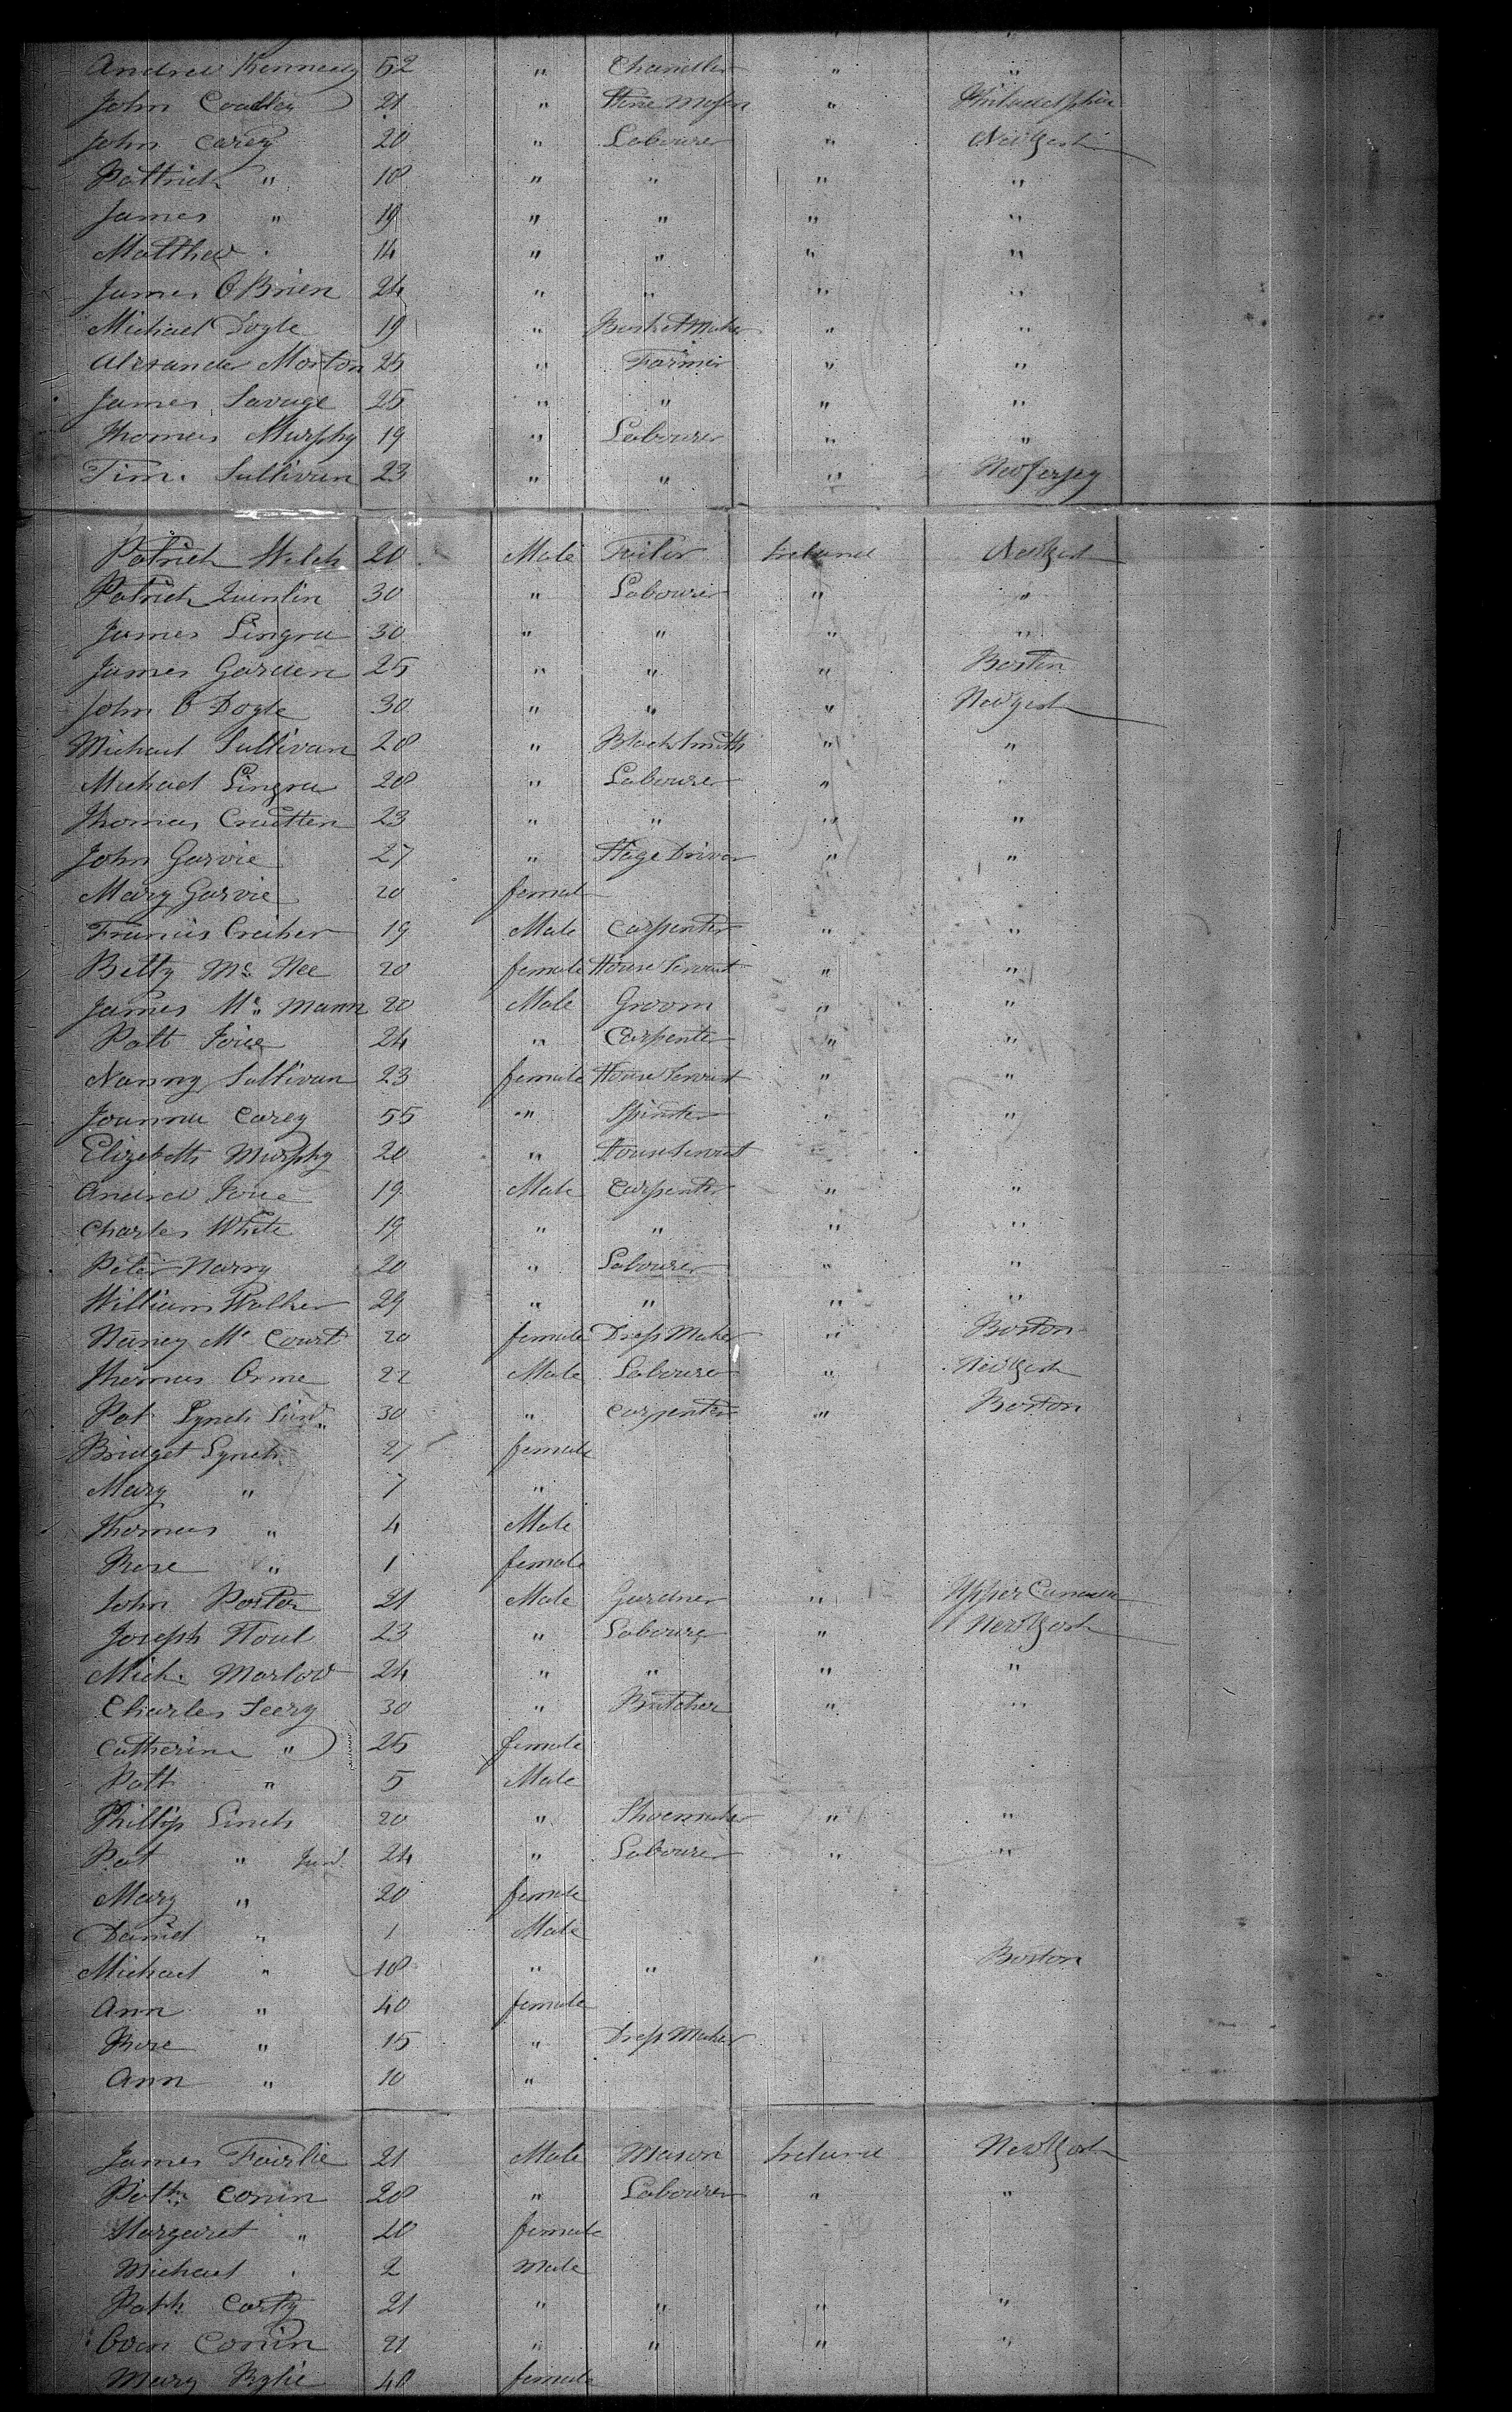 Andrew Kennedy 52 " Chandler " "
John Coakley 21 " Stone Mason " Philadelphia
John Carey 20 " Labourer " New York
Pattrick " 18 " " " "
James " 19 " " " "
Matthew " 14 " " " "
James O Brien 24 " " " "
Michael Doyle 19 " Basket Maker " "
Alexander Morton 25 " Farmer " "
James Savage 25 " " " "
Thomas Murphy 19 " Labourer " "
Tim. Sullivan 23 " " " New Jersey
Patrick Welch 20 Male Tailor Ireland New York
Patrick Quinlin 30 " Labourer " "
James Lingra 30 " " " "
James Garden 25 " " " Boston
John O Doyle 30 " " " New York
Michael Sullivan 28 " Blacksmith " "
Michael Lingra 28 " Labourer "
Thomas 23 " " " "
John Garvie 27 " Stage Driver " "
Mary Garvie 20 female
Francis 19 Male Carpenter " "
Betty Mc Nee 20 female House Servant " "
James Mc Mann 20 Male Groom " "
Patt Joice 24 " Carpenter " "
Nanny Sullivan 23 female House Servant " "
Joanna Carey 55 " " "
Elizabeth Murphy 20 " House Servant "
Andrew Joice 19 Male Carpenter " "
Charles White 19 " " " "
Peter Narry 20 " Labourer " "
William Walker 29 " " " "
Nancy Mc Court 20 female Dress Maker " Boston
Thomas Orme 22 Male Labourer " New York
Pat Lynch Sinr 30 " Carpenter " Boston
Bridget Lynch 27 female
Mary " 7 "
Thomas " 4 Male
Rose " 1 female
John Porter 21 Male Gardner " Upper Canada
Joseph 23 " Labourer " New York
Mich. Marlow 24 " " " "
Charles Feery 30 " Butcher " "
Catherine " 25 female
Patt " 5 Male
Phillip Linch 20 " Shoemaker " "
Pat " Junr 24 " Labourer " "
Mary " 20 female
Daniel " 1 Male
Michael " 18 " " " Boston
Ann " 40 female
Rose " 15 " Dress Maker
Ann " 10 "
James Fairlie 21 Male Mason Ireland New York
Patk Conin 28 " Labourer " "
Margaret " 20 female
Michael " 2 Male
Patk Carty 21 " " " "
Owen Conin 21 " " " "
Mary Rylie 40 female